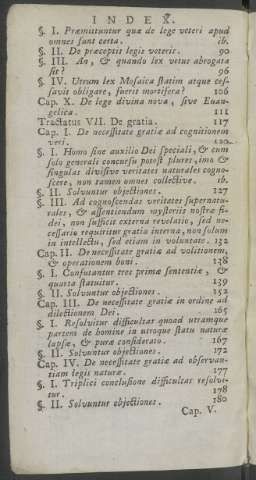 INDEX.
§. I. Præmittuntur quæ de lege veteri apud
omnes sunt certa. ib.
§. II. De præceptis legis veteris. 90
§. III. An, & quando lex vetus abrogata
sit? 96
§. IV. Utrum lex Mosaica statim atque ces-
savit obligare, fuerit mortifera? 106
Cap. X. De lege divina nova, sive Euan-
gelica. 111
Tractatus VII. De gratia. 117
Cap. I. De necessitate gratiæ ad cognitionem
veri. 120
§. I. Homo sine auxilio Dei speciali, & cum
solo generali concursu potest plures, imo &
singulas divisive veritates naturales cogno-
scere, non tamen omnes collective. ib.
§. II. Solvuntur objectiones. 127
§. III. Ad cognoscendas veritates supernatu-
rales, & assentiendum mysteriis nostræ fi-
dei, non sufficit externa revelatio, sed ne-
cessario requiritur gratia interna, non solum
in intellectu, sed etiam in voluntate. 132
Cap. II. De necessitate gratiæ ad volitionem,
& operationem boni. 138
§. I. Confutantur tres primæ sententiæ, &
quarta statuitur. 139
§. II. Solvuntur objectiones. 152
Cap. III. De necessitate gratiæ in ordine ad
dilectionem Dei. 165
§. I. Resolvitur difficultas quoad utramque
partem de homine in utroque statu naturæ
lapsæ, & puræ considerato. 167
§. II. Solvuntur objectiones. 172
Cap. IV. De necessitate gratiæ ad observan-
tiam legis naturæ. 177
§. I. Triplici conclusione difficultas resolve-
tur. 178
§. II. Solvuntur objectiones. 180
Cap. V.